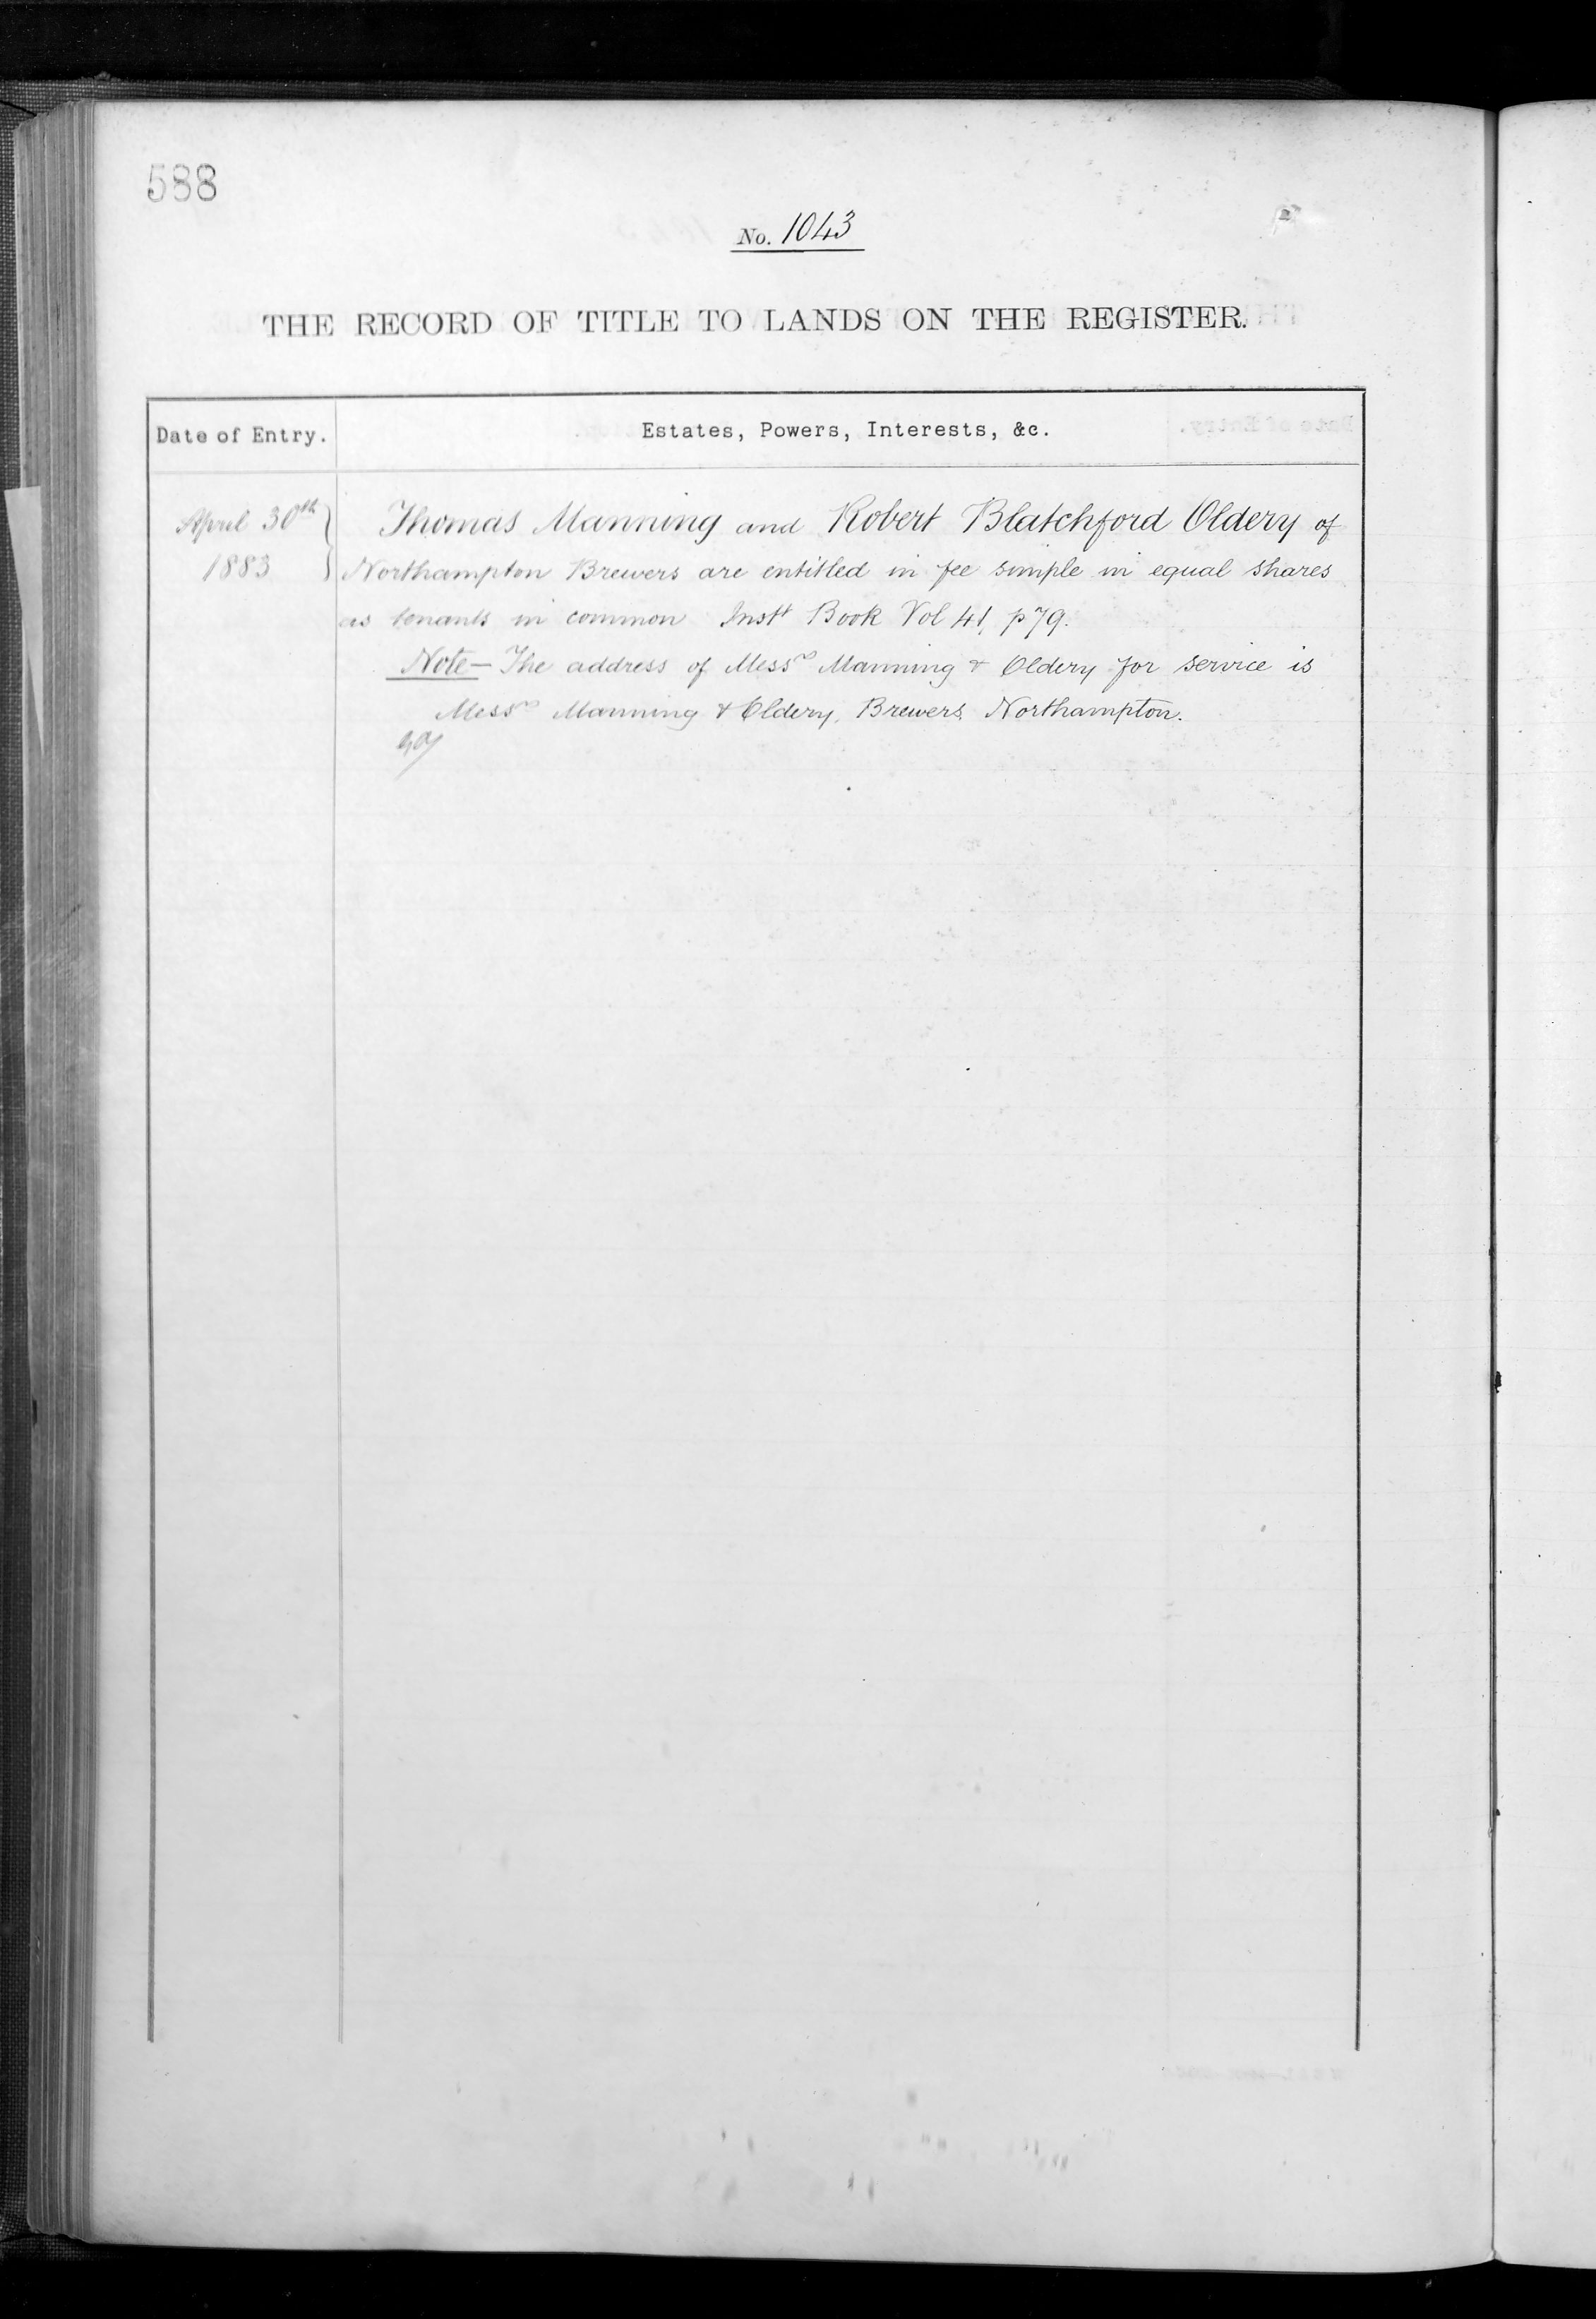 588
No. 1043
THE RECORD OF TITLE TO LANDS ON THE REGISTER.
Date of Entry.
Estates, Powers, Interests, &c.
April 30th
1883
Thomas Manning and Robert Blatchford Oldery of
Northampton Brewers are entitled in fee simple in equal shares
as tenants in common Instt Book Vol 41, p 79.
Note— The address of Messrs Manning & Oldery for service is
Messrs Manning & Oldery, Brewers, Northampton.